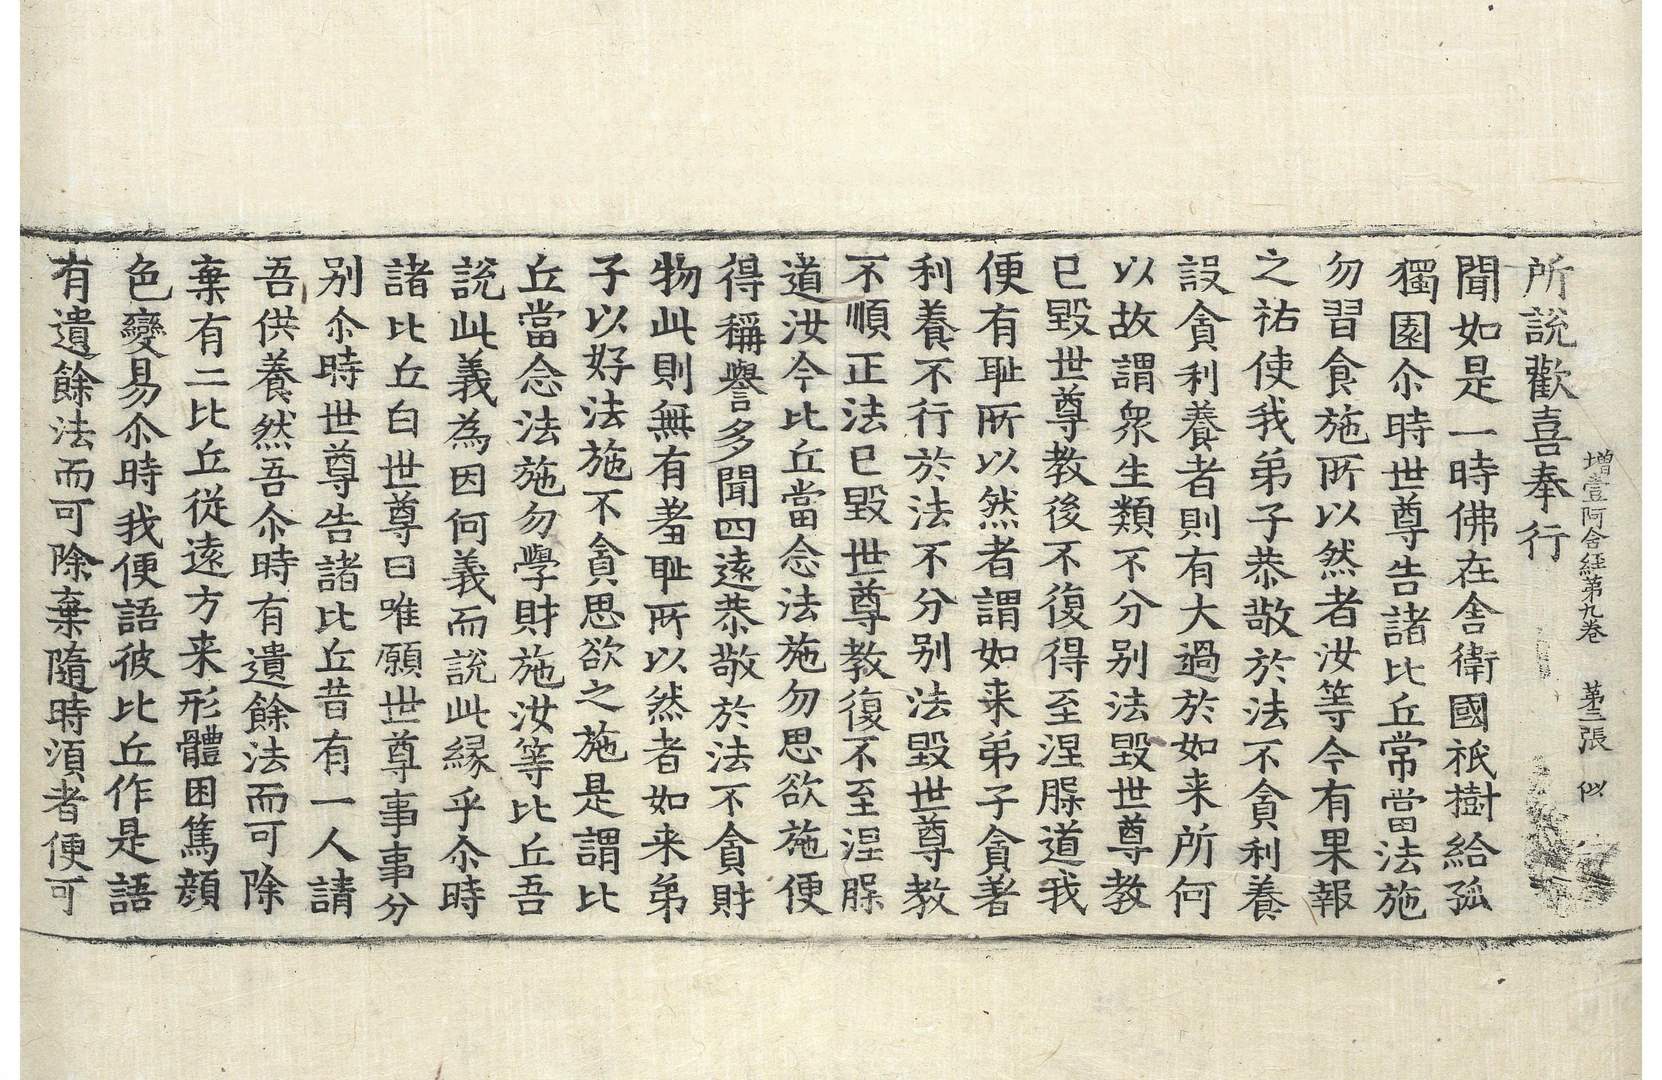 增壹阿含經第九卷　第三張　似
所說歡喜奉行
聞如是一時佛在舍衛國祇樹給孤
獨園尒時世尊告諸比丘常當法施
勿習食施所以然者汝等今有果報
之祐使我弟子恭敬於法不貪利養
設貪利養者則有大過於如来所何
以故謂衆生類不分别法毀世尊教
已毀世尊教後不復得至涅槃道我
便有恥所以然者謂如来弟子貪著
利養不行於法不分别法毀世尊教
不順正法已毀世尊教復不至涅槃
道汝今比丘當念法施勿思欲施便
得稱譽多聞四遠恭敬於法不貪財
物此則無有羞恥所以然者如来弟
子以好法施不貪思欲之施是謂比
丘當念法施勿學財施汝等比丘吾
說此義為因何義而說此緣乎尒時
諸比丘白世尊曰唯願世尊事事分
别尒時世尊告諸比丘昔有一人請
吾供養然吾尒時有遺餘法而可除
棄有二比丘從遠方来形體困篤顏
色變易尒時我便語彼比丘作是語
有遺餘法而可除棄隨時湏者便可